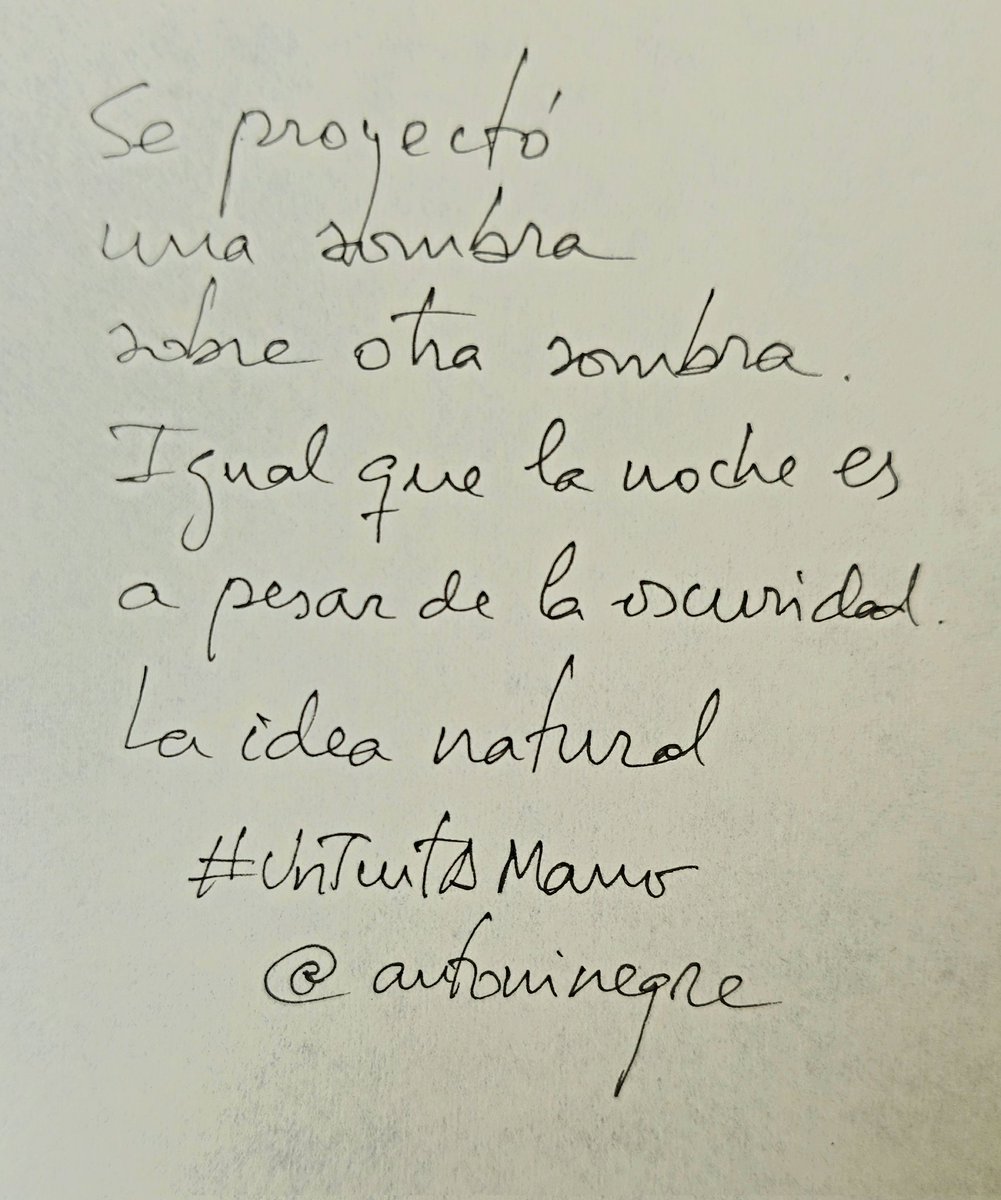 Se proyectó
una sombra
sobre otra sombra.
Igual que la noche es
a pesar de la oscuridad.
La idea natural
#UnTuitAMano
@antoninegre